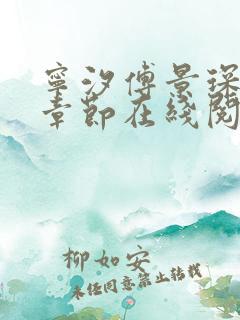 寧汐傅景琛
章節在綫閱
柳如安
未经同意禁止转载